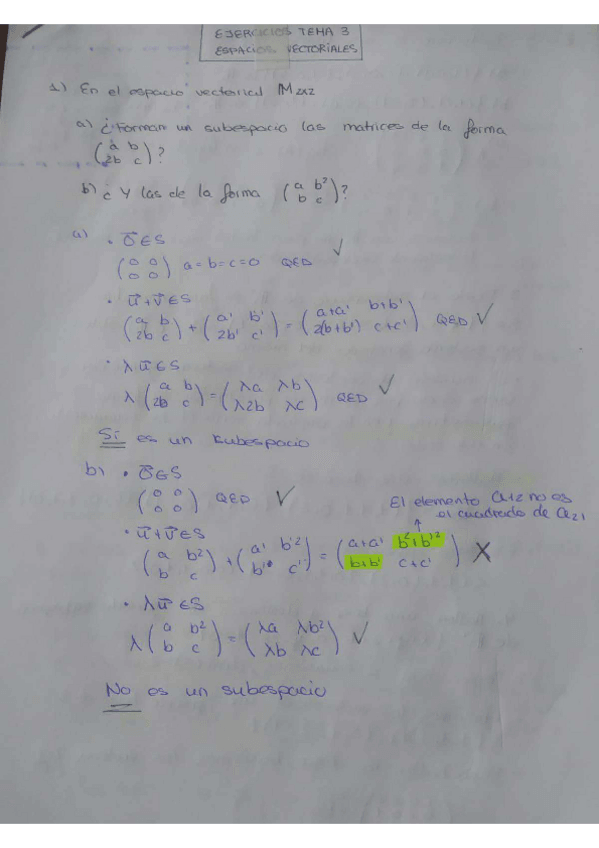 EJERCICIOS TEMA 3
ESPACIOS VECTORIALES
1) En el espacio vectorial M2x2
a) ¿Forman un subespacio las matrices de la forma
(a b; 2b c)?
b) ¿Y las de la forma (a b²; b c)?
a) • 0⃗ ∈ S ✓
(0 0; 0 0) a=b=c=0 QED
• u⃗+v⃗ ∈ S
(a b; 2b c) + (a' b'; 2b' c') = (a+a' b+b'; 2(b+b') c+c') QED ✓
• λu⃗ ∈ S
λ (a b; 2b c) = (λa λb; λ2b λc) QED ✓
Sí es un subespacio
b) • 0⃗ ∈ S
(0 0; 0 0) QED ✓
El elemento a12 no es
el cuadrado de a21
• u⃗+v⃗ ∈ S ↑
(a b²; b c) + (a' b'²; b' c') = (a+a' b²+b'²; b+b' c+c') X
• λu⃗ ∈ S
λ (a b²; b c) = (λa λb²; λb λc) ✓
No es un subespacio